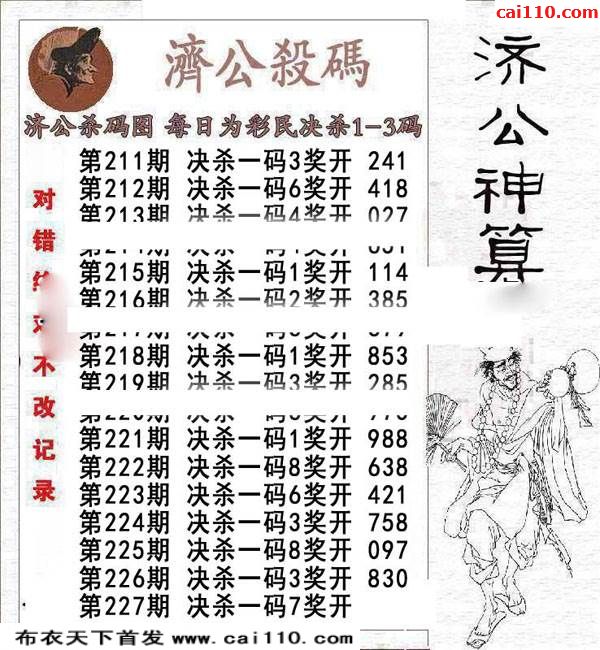 cai110.com
濟公殺碼
济公杀码图 每日为彩民决杀1-3码
第211期 决杀一码3奖开 241
第212期 决杀一码6奖开 418
第213期 决杀一码4奖开 027
第215期 决杀一码1奖开 114
第216期 决杀一码2奖开 385
第218期 决杀一码1奖开 853
第219期 决杀一码3奖开 285
第221期 决杀一码1奖开 988
第222期 决杀一码8奖开 638
第223期 决杀一码6奖开 421
第224期 决杀一码3奖开 758
第225期 决杀一码8奖开 097
第226期 决杀一码3奖开 830
第227期 决杀一码7奖开
对错不改记录
济公神算
布衣天下首发 www.cai110.com